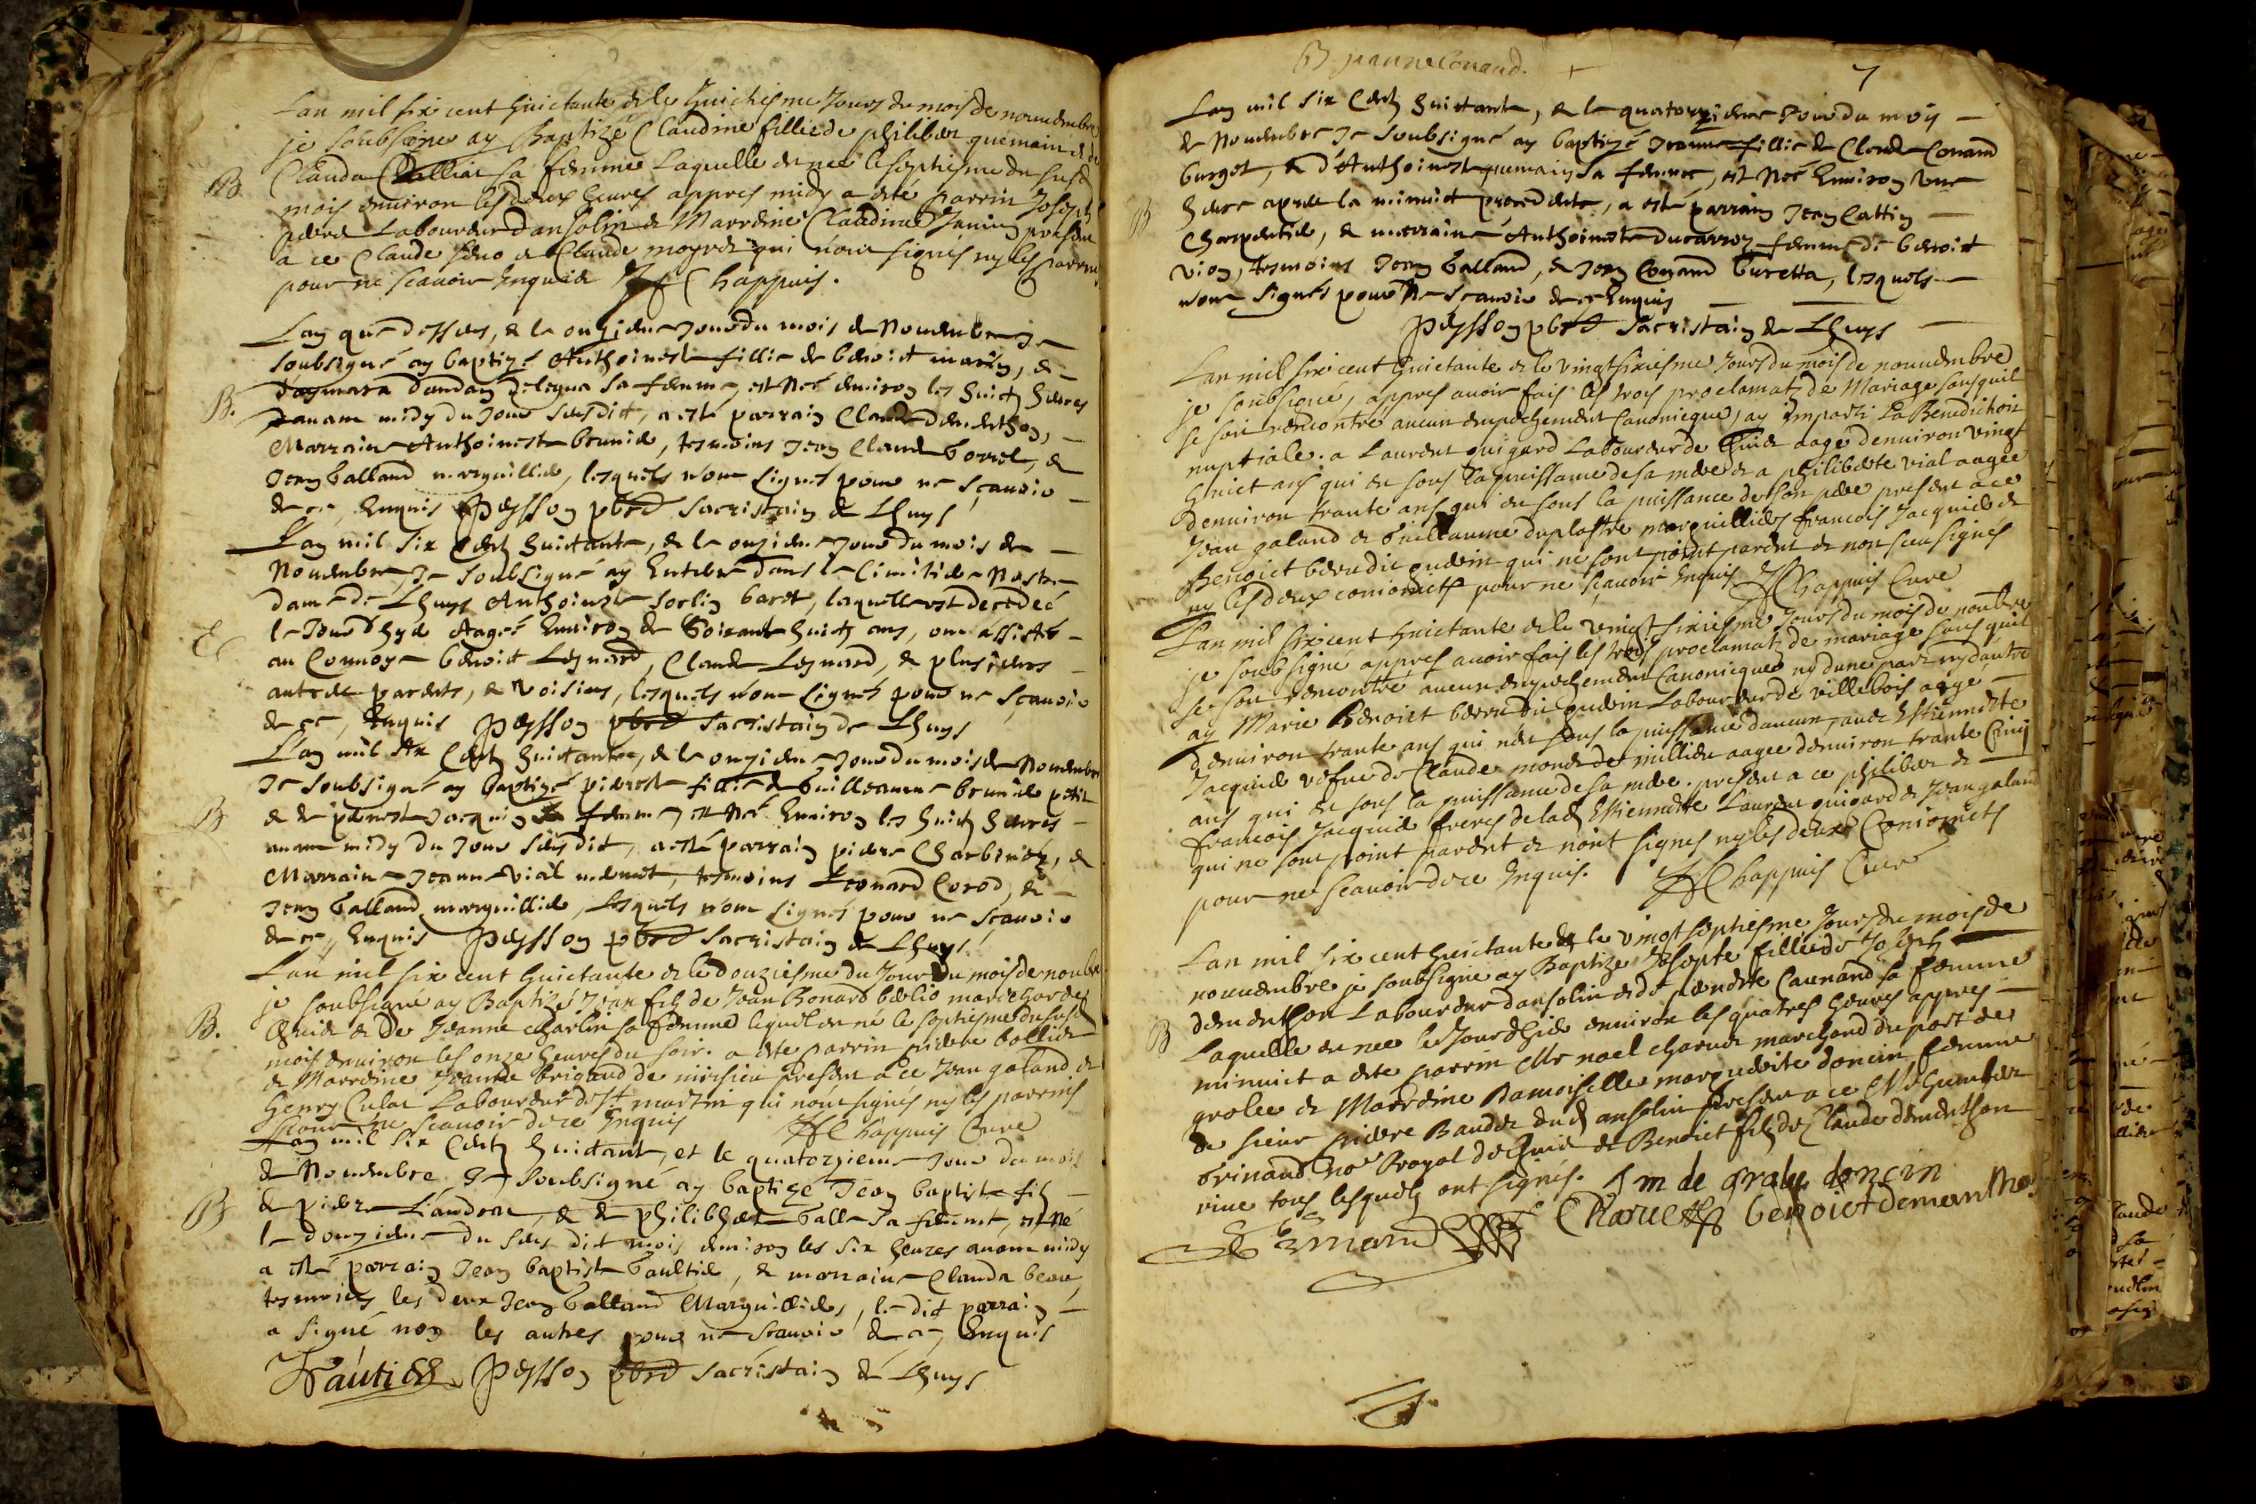 Lan mil six cent huictante et le huichiesme Jours du mois de nouuembre
je soubsigne ay Baptizé Claudine fillie de philiber quemain et de
B Clauda Challiat sa femme Laquelle et nee le septiesme du susd
mois enuiron les deux heures appres midy a esté parrin Joseph
Labourdur danselin et Marreine Claudine Janin presens
a ce Claude seno et Claude moyret qui nont signés ny les parrin
pour ne scauoir Enquis Chappuis.
Lan que dessus, et le onzieme Jour du mois de Nouembre Je
soubsigné ay baptizé Anthoineste fillie de benoict marin, et
B. dandan sa femme, est Neé enuiron les huict heures
dauant midy du Jour susdit, a esté parrain Claude dementhon,
Marraine Anthoineste brunie, tesmoins Jean Claude borrel, et
Jean Galland marguillie, lesquels nont signés pour ne sçauoir
de ce, Enquis Peysson pbre Sacristain de Lhuys
Lan mil six Cent huictante, et le onzieme Jour du mois de
Nouembre, Je soubsigné ay Enterre dans le Cimitiere Nostre
dame de Lhuys Anthoineste sorlin baret, laquelle est decedeé
E le Jour dhyer Aageé Enuiron de soixante huict ans, ont assisté
au Conuoy benoict Leynard, Claude Leynard, et plusieurs
autre parents, et voisins, lesquels nont signés pour ne sçauoir
de ce, Enquis Peysson pbre Sacristain de Lhuys
Lan mil six Cent huictante, et le onzieme Jour du mois de Nouembre
Je soubsigné ay baptizé pierrete fillie de Guilleaume brunie petit
B et de pernete Jacquin sa femme, est Neé Enuiron les huict heures
auant midy du Jour susdit, a esté parrain pierre Charbinet, et
Marraine Jeanne Vial, tesmoins Leonard Corod, et
Jean Galland marguillie, Lesquels nont signés pour ne scauoir
de ce, Enquis Peysson pbre Sacristain de Lhuys
Lan mil six cent huictante et le douziesme du Jour du mois de nouembre
je soubsigné ay Baptizé Jean filz de Jean Bonard
B. Lhuis et De Jeanne charlin sa femme lequel et né le septiesme du susd
mois enuiron les onze heures du soir. a esté parrin pierre bollier
et Marreine Jeanne brigand de presens a ce Jean galand et
Henry Culat Labourdur de st martin qui nont signés ny les parrins
pour ne scauoir de ce Enquis Chappuis Cure
Lan mil six Cent huictante, et le quatorzieme Jour du mois
de Nouembre Je soubsigné ay baptizé Jean baptiste filz
B de pierre Liaudon, et de philiberte Galle sa femme, est Né
le douzieme du sus dit mois enuiron les six heures auant midy
a esté parrain Jean baptiste Gaultie, et marraine Clauda
tesmoins les deux Jean Galland Marguilliers, le dit parrain
a signé non les autres pour ne scauoir de ce, Enquis
Gautier Peysson pbre Sacristain de Lhuys
B. Jeanne Conand. +
7
Lan mil six Cent huictante, et le quatorzieme Jour du moy
de Nouembre Je soubsigné ay baptizé Jeanne fillie de Claude Conand
burget, et d'Anthoineste quemain sa femme, est Neé Enuiron une
B heure apres la minuict precedente, a esté parrain Jean Cattin
Charpentie, et marraine Anthoineste ducarroz femme de benoict
Vion, tesmoins Jean Galland, et Jean Conand buretta, lesquels
nont signés pour Ne sçauoir de ce Enquis
Peysson pbre Sacristain de Lhuys
Lan mil six cent huictante et le vingt sixiesme Jours du mois de nouuembre
je soubsigné, appres auoir fais les trois proclamatz de Mariage sans quil
se soit rencontré aucun enpechement Canonicque, ay imparti La Benediction
nuptiale. a Laurent guigard Labourdur de Lhuis aagé denuiron vingt
huict ans qui et sous la puissance de sa mere et a philiberte vial aagee
denuiron trante ans qui et sous la puissance de son pere presens a ce
Jean galand et Guillaume duplastre marguilliers francois Jacquier et
Benoict berudie gudein qui ne sont point parent et non sceu signés
ny les deux conioincts pour ne sçauoir Enquis Chappuis Cure
Lan mil six cent huictante et le vingt sixiesme Jours du mois de nouembre
je soubsigné appres auoir fais les trois proclamatz de mariage sans quil
se soit rencontré aucun enpechement Canonicque ny dune part ny dautre
ay Marie Benoict berrudie gudein Labourdur de villebois aagé
denuiron trante ans qui nest sous la puissance daucun, auec Estiennette
Jacquier vefue de Claude monet de millieu aagee denuiron trante Cinq
ans qui et sous la puissance de sa mere. presens a ce philiber et
francois Jacquier freres de lad Estiennette Laurent guigard et Jean galand
qui ne sont point parent et nont signes ny les deux Conioincts
pour ne scauoir de ce Enquis. Chappuis Cure
Lan mil six cent huictante et le vingt septiesme Jours du mois de
nouuembre je soubsigne ay Baptize Josepte fillie de Joseph
dementhon Labourdur danselin et de pernete Caunand sa femme
B Laquelle et nee le Jourdhuit enuiron les quatres heures appres
minuict a este parrin Mr nael charuet marchand du port de
grolee et Marreine Damoiselle marguerite doncin femme
de sieur pierre Baudet dud anselin presens a ce Me Humber
Brinand no Royal de Lhuis et Benoict filz de Claude dementhon
tous lesquelz ont signés. m de grolee doncin
Brinand Charuet benoict dementhon